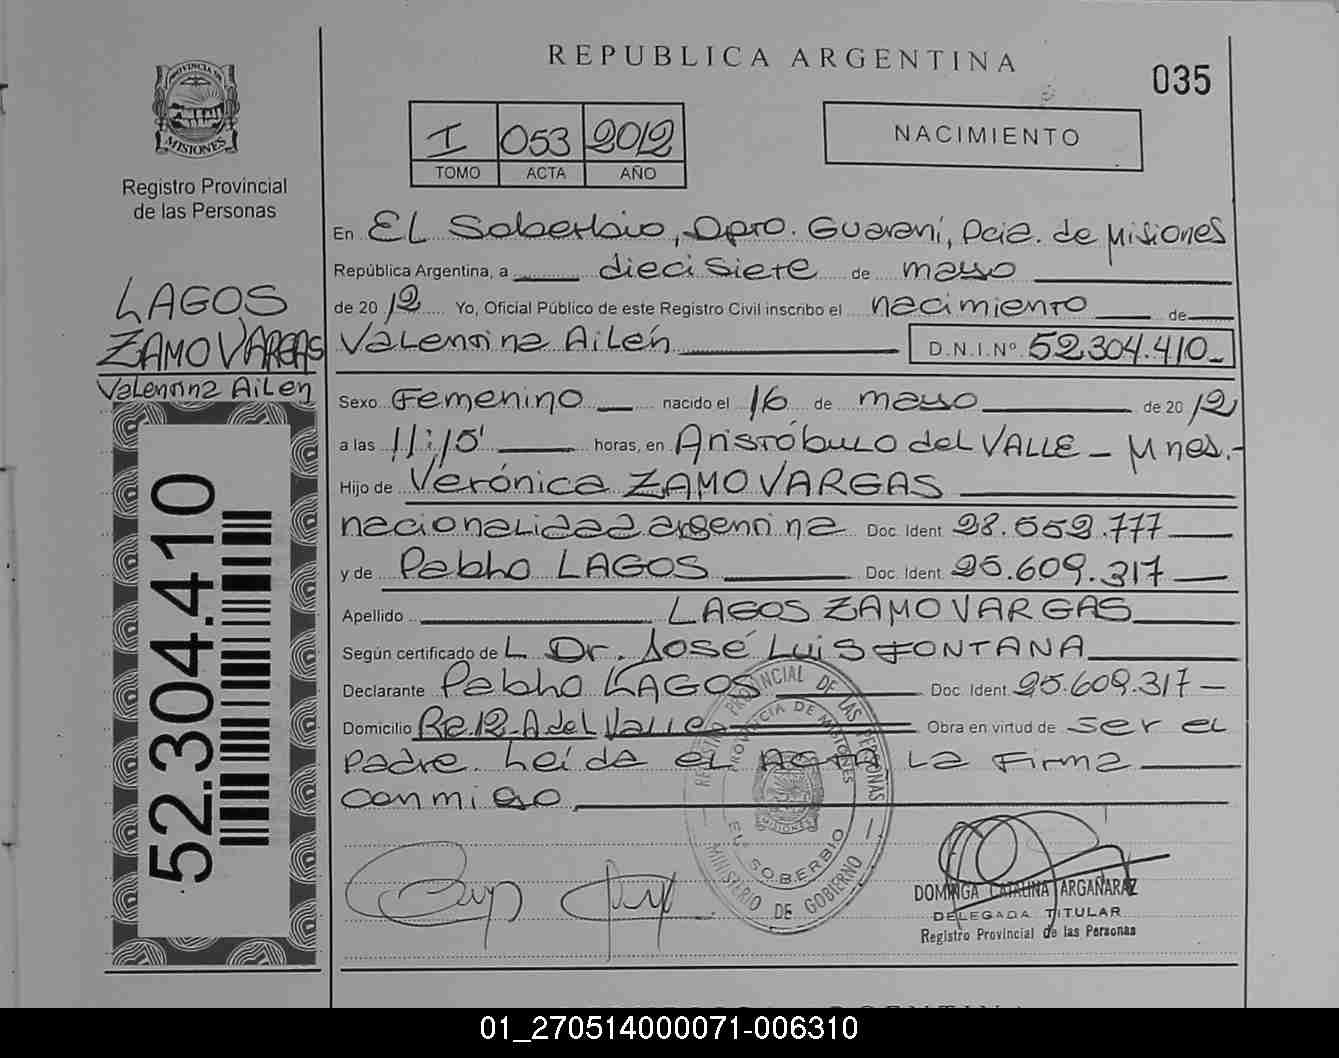 REPUBLICA ARGENTINA
035
PROVINCIA DE
MISIONES
Registro Provincial
de las Personas
I 053 2012
TOMO ACTA AÑO
NACIMIENTO
LAGOS
ZAMO VARGAS
Valentina Ailen
52.304.410
En El Soberbio, Dpto. Guaraní, Pcia. de Misiones
República Argentina, a diecisiete de mayo
de 2012 Yo, Oficial Público de este Registro Civil inscribo el nacimiento de
Valentina Ailén D.N.I.Nº 52.304.410
Sexo Femenino nacido el 16 de mayo de 2012
a las 11:15' horas, en Aristóbulo del VALLE - Mnes.-
Hijo de Verónica ZAMO VARGAS
nacionalidad argentina Doc. Ident. 28.652.777
y de Pablo LAGOS Doc. Ident. 25.609.317
Apellido LAGOS ZAMO VARGAS
Según certificado de L Dr. José Luis FONTANA
Declarante Pablo LAGOS Doc. Ident. 25.609.317 -
Domicilio R.12-A del Valle Obra en virtud de ser el
padre. Leída el ACTA la firma
conmigo
REGISTRO PROVINCIAL DE LAS PERSONAS
PROVINCIA DE MISIONES
MISIONES
EL SOBERBIO
MINISTERIO DE GOBIERNO
DOMINGA CATALINA ARGAÑARAZ
DELEGADA TITULAR
Registro Provincial de las Personas
01_270514000071-006310